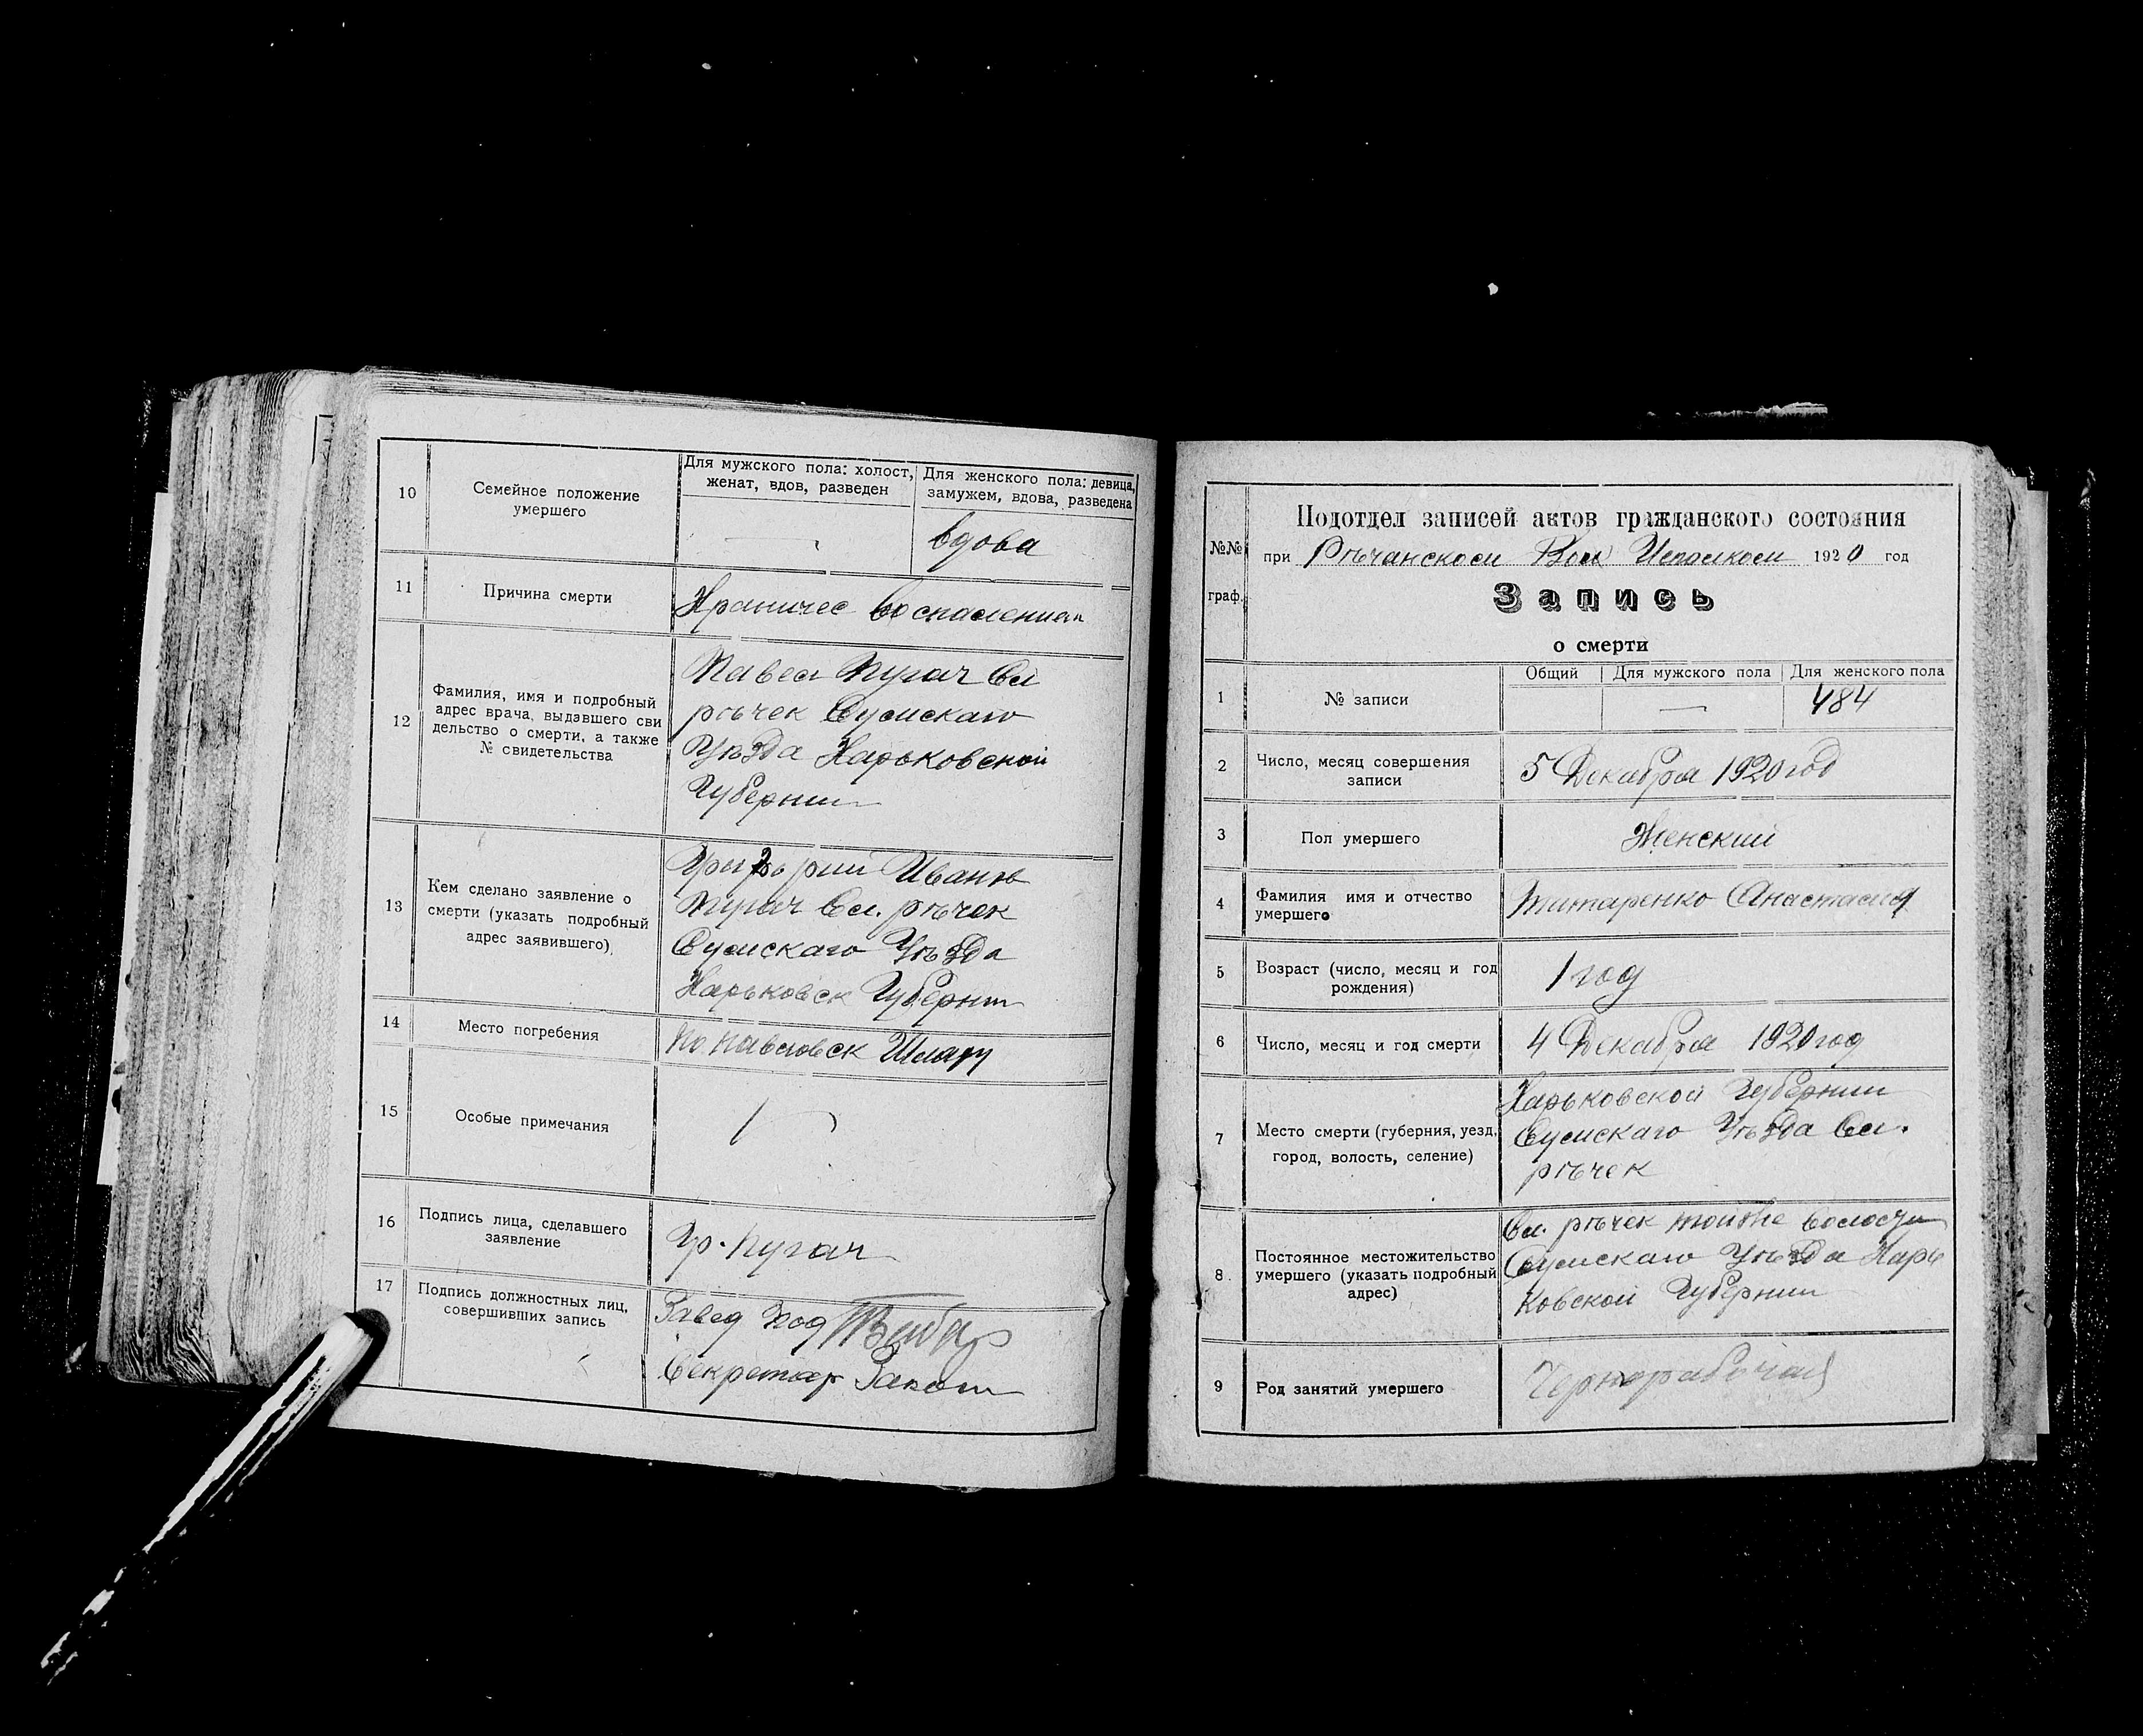 10
Семейное положение
умершего
Для мужского пола: холост,
женат, вдов, разведен
Для женского пола: девица,
замужем, вдова, разведена
—
вдова
11
Причина смерти
Храничес воспалением
12
Фамилия, имя и подробный
адрес врача, выдавшего сви
дельство о смерти, а также
№ свидетельства
Павел Пугач Сл
рѣчек Сумскаго
Уѣзда Харьковской
Губернии
13
Кем сделано заявление о
смерти (указать подробный
адрес заявившего)
Иванов
Пугач Сл. рѣчек
Сумскаго Уѣзда
Харьковск Губернии
14
Место погребения
15
Особые примечания
16
Подпись лица, сделавшего
заявление
Гр. Пугач
17
Подпись должностных лиц,
совершивших запись
Завед Под
Секретар
№№
граф.
Подотдел записей актов гражданского состояния
при Рѣчанском Вол Исполком 1920 год
Запись
о смерти
1
№ записи
Общий
Для мужского пола
Для женского пола
—
484
2
Число, месяц совершения
записи
5 Декабря 1920 год
3
Пол умершего
Женский
4
Фамилия имя и отчество
умершего
Титаренко Анастасия
5
Возраст (число, месяц и год
рождения)
1 год
6
Число, месяц и год смерти
4 Декабря 1920 год
7
Место смерти (губерния, уезд,
город, волость, селение)
Харьковской Губернии
Сумскаго Уѣзда Сл.
рѣчек
8.
Постоянное местожительство
умершего (указать подробный
адрес)
Сл. рѣчек тойже волости
Сумскаго Уѣзда Харь
ковской Губернии
9
Род занятий умершего
Чернорабочая